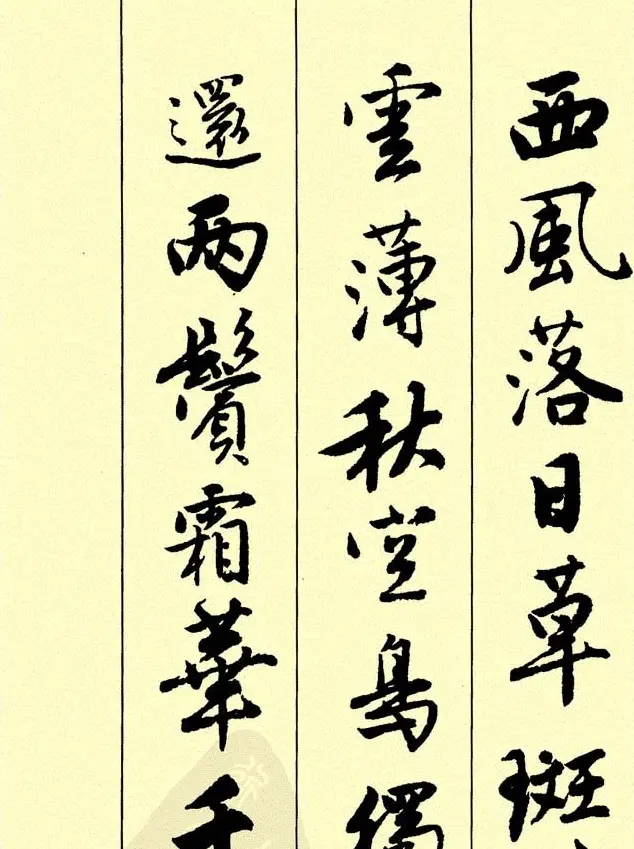 西風落日草斑
雲薄秋空鳥獨
還兩鬢霜華千